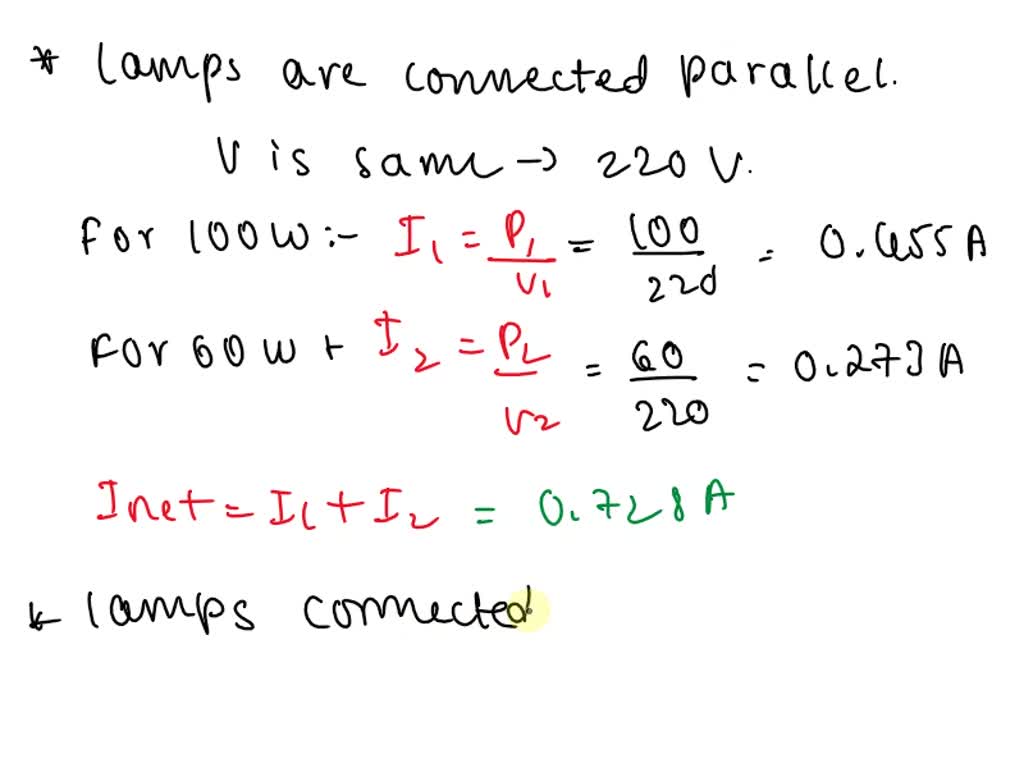 * Lamps are connected parallel.
V is same → 220 V.
For 100W :- I₁ = P₁/V₁ = 100/220 = 0.455 A
For 60W + I₂ = P₂/V₂ = 60/220 = 0.273 A
Inet = I₁ + I₂ = 0.728 A
* Lamps connected